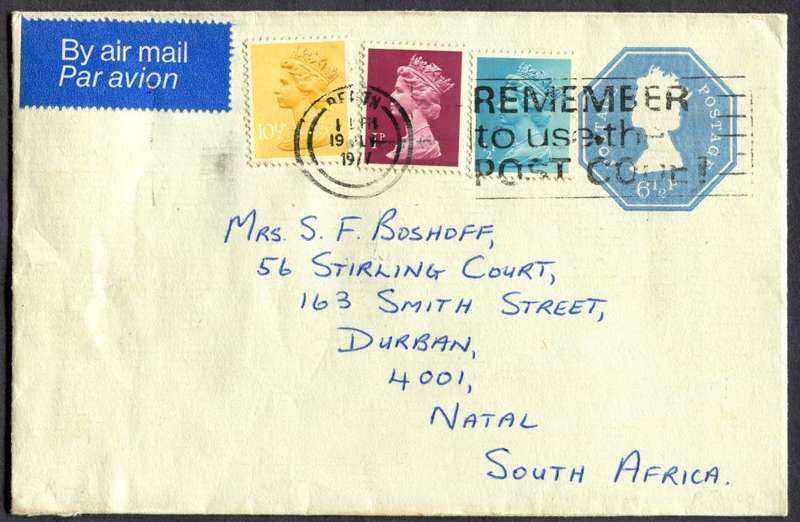 By air mail
Par avion
10½P
1977
REMEMBER
to use the
POST CODE!
POSTAGE
6½P
MRS. S. F. BOSHOFF,
56 STIRLING COURT,
163 SMITH STREET,
DURBAN,
4001,
NATAL
SOUTH AFRICA.